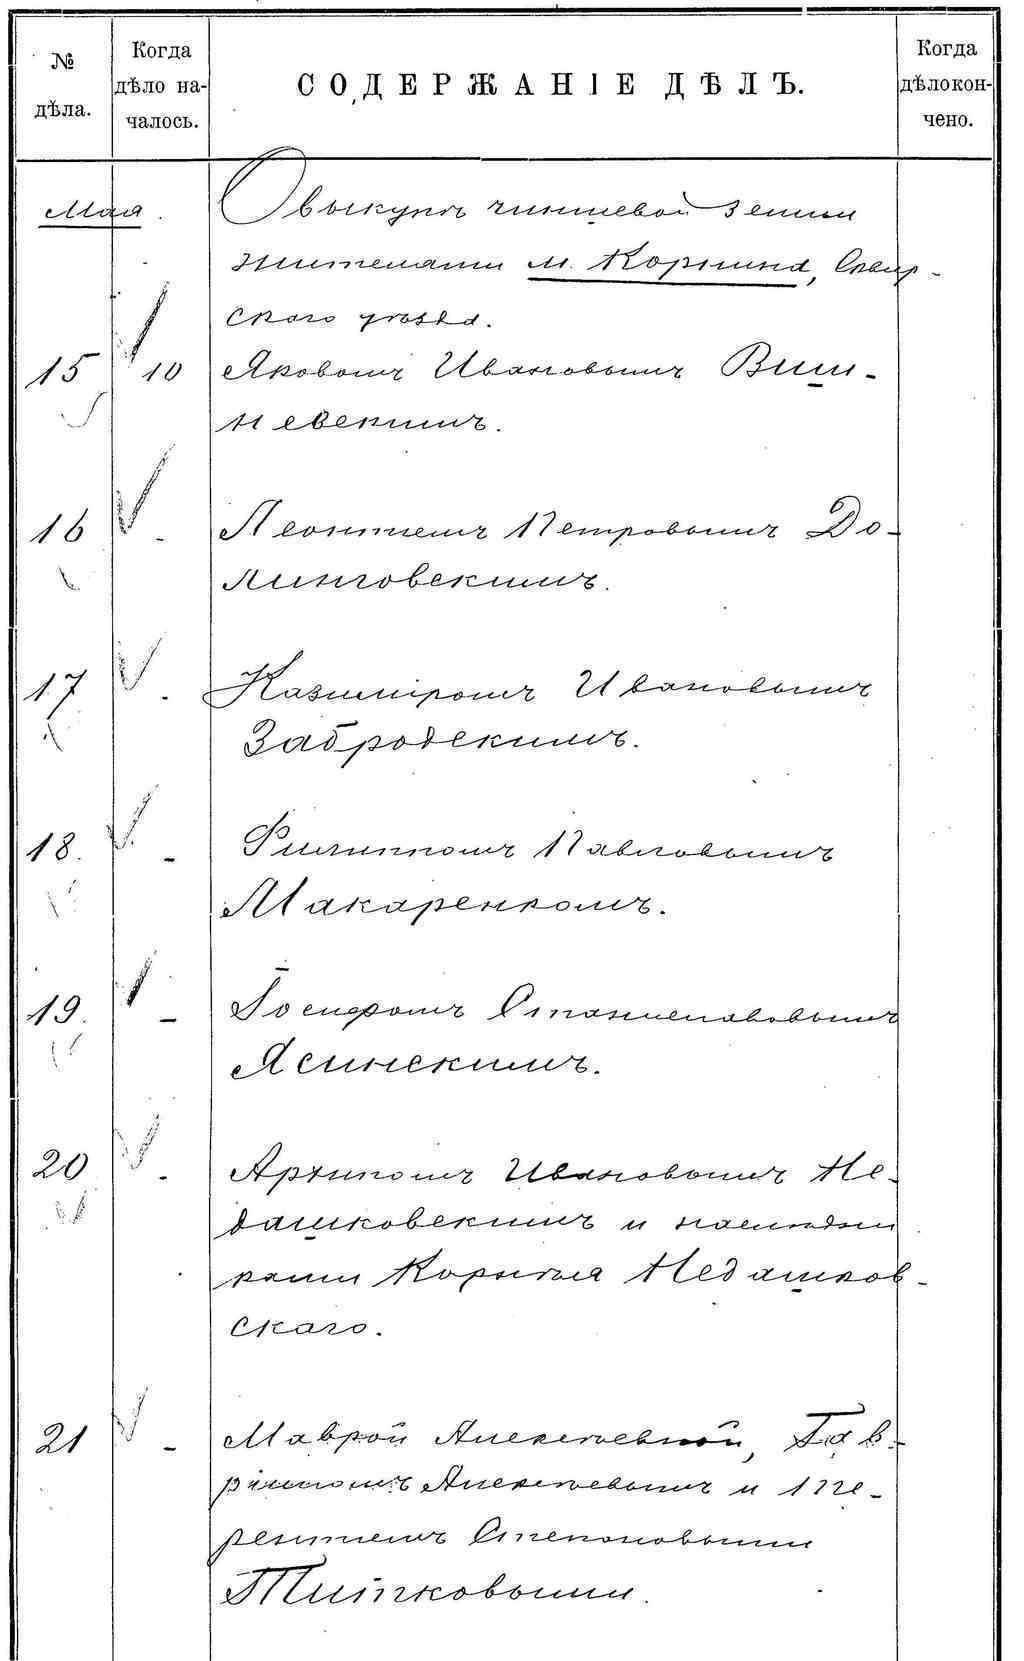 № дѣла.
Когда дѣло на-чалось.
СОДЕРЖАНІЕ ДѢЛЪ.
Когда дѣло кон-чено.
Мая.
О выкупѣ чиншевой земли
жителями м. Корнина, Сквир-
скаго уѣзда.
15 10 Яковомъ Ивановымъ Виш-
невскимъ.
16 - Леонтіемъ Петровымъ До-
линговскимъ.
17 - Казиміромъ Ивановымъ
Забродскимъ.
18. - Филиппомъ Павловымъ
Макаренкомъ.
19. - Іосифомъ Станиславовымъ
Ясинскимъ.
20 - Архипомъ Ивановымъ Не-
дашковскимъ и наслѣдни
ками Корнѣя Недашков-
скаго.
21 - Маврой Алексѣевной, Гав-
ріиломъ Алексѣевымъ и Те-
рентіемъ Степановыми
Титковыми.